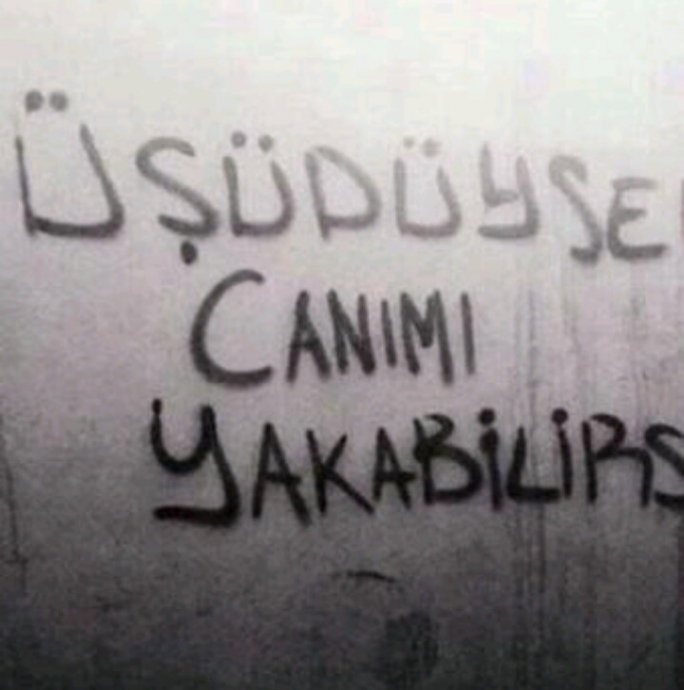 ÜŞÜDÜYSE
CANIMI
YAKABİLİRS